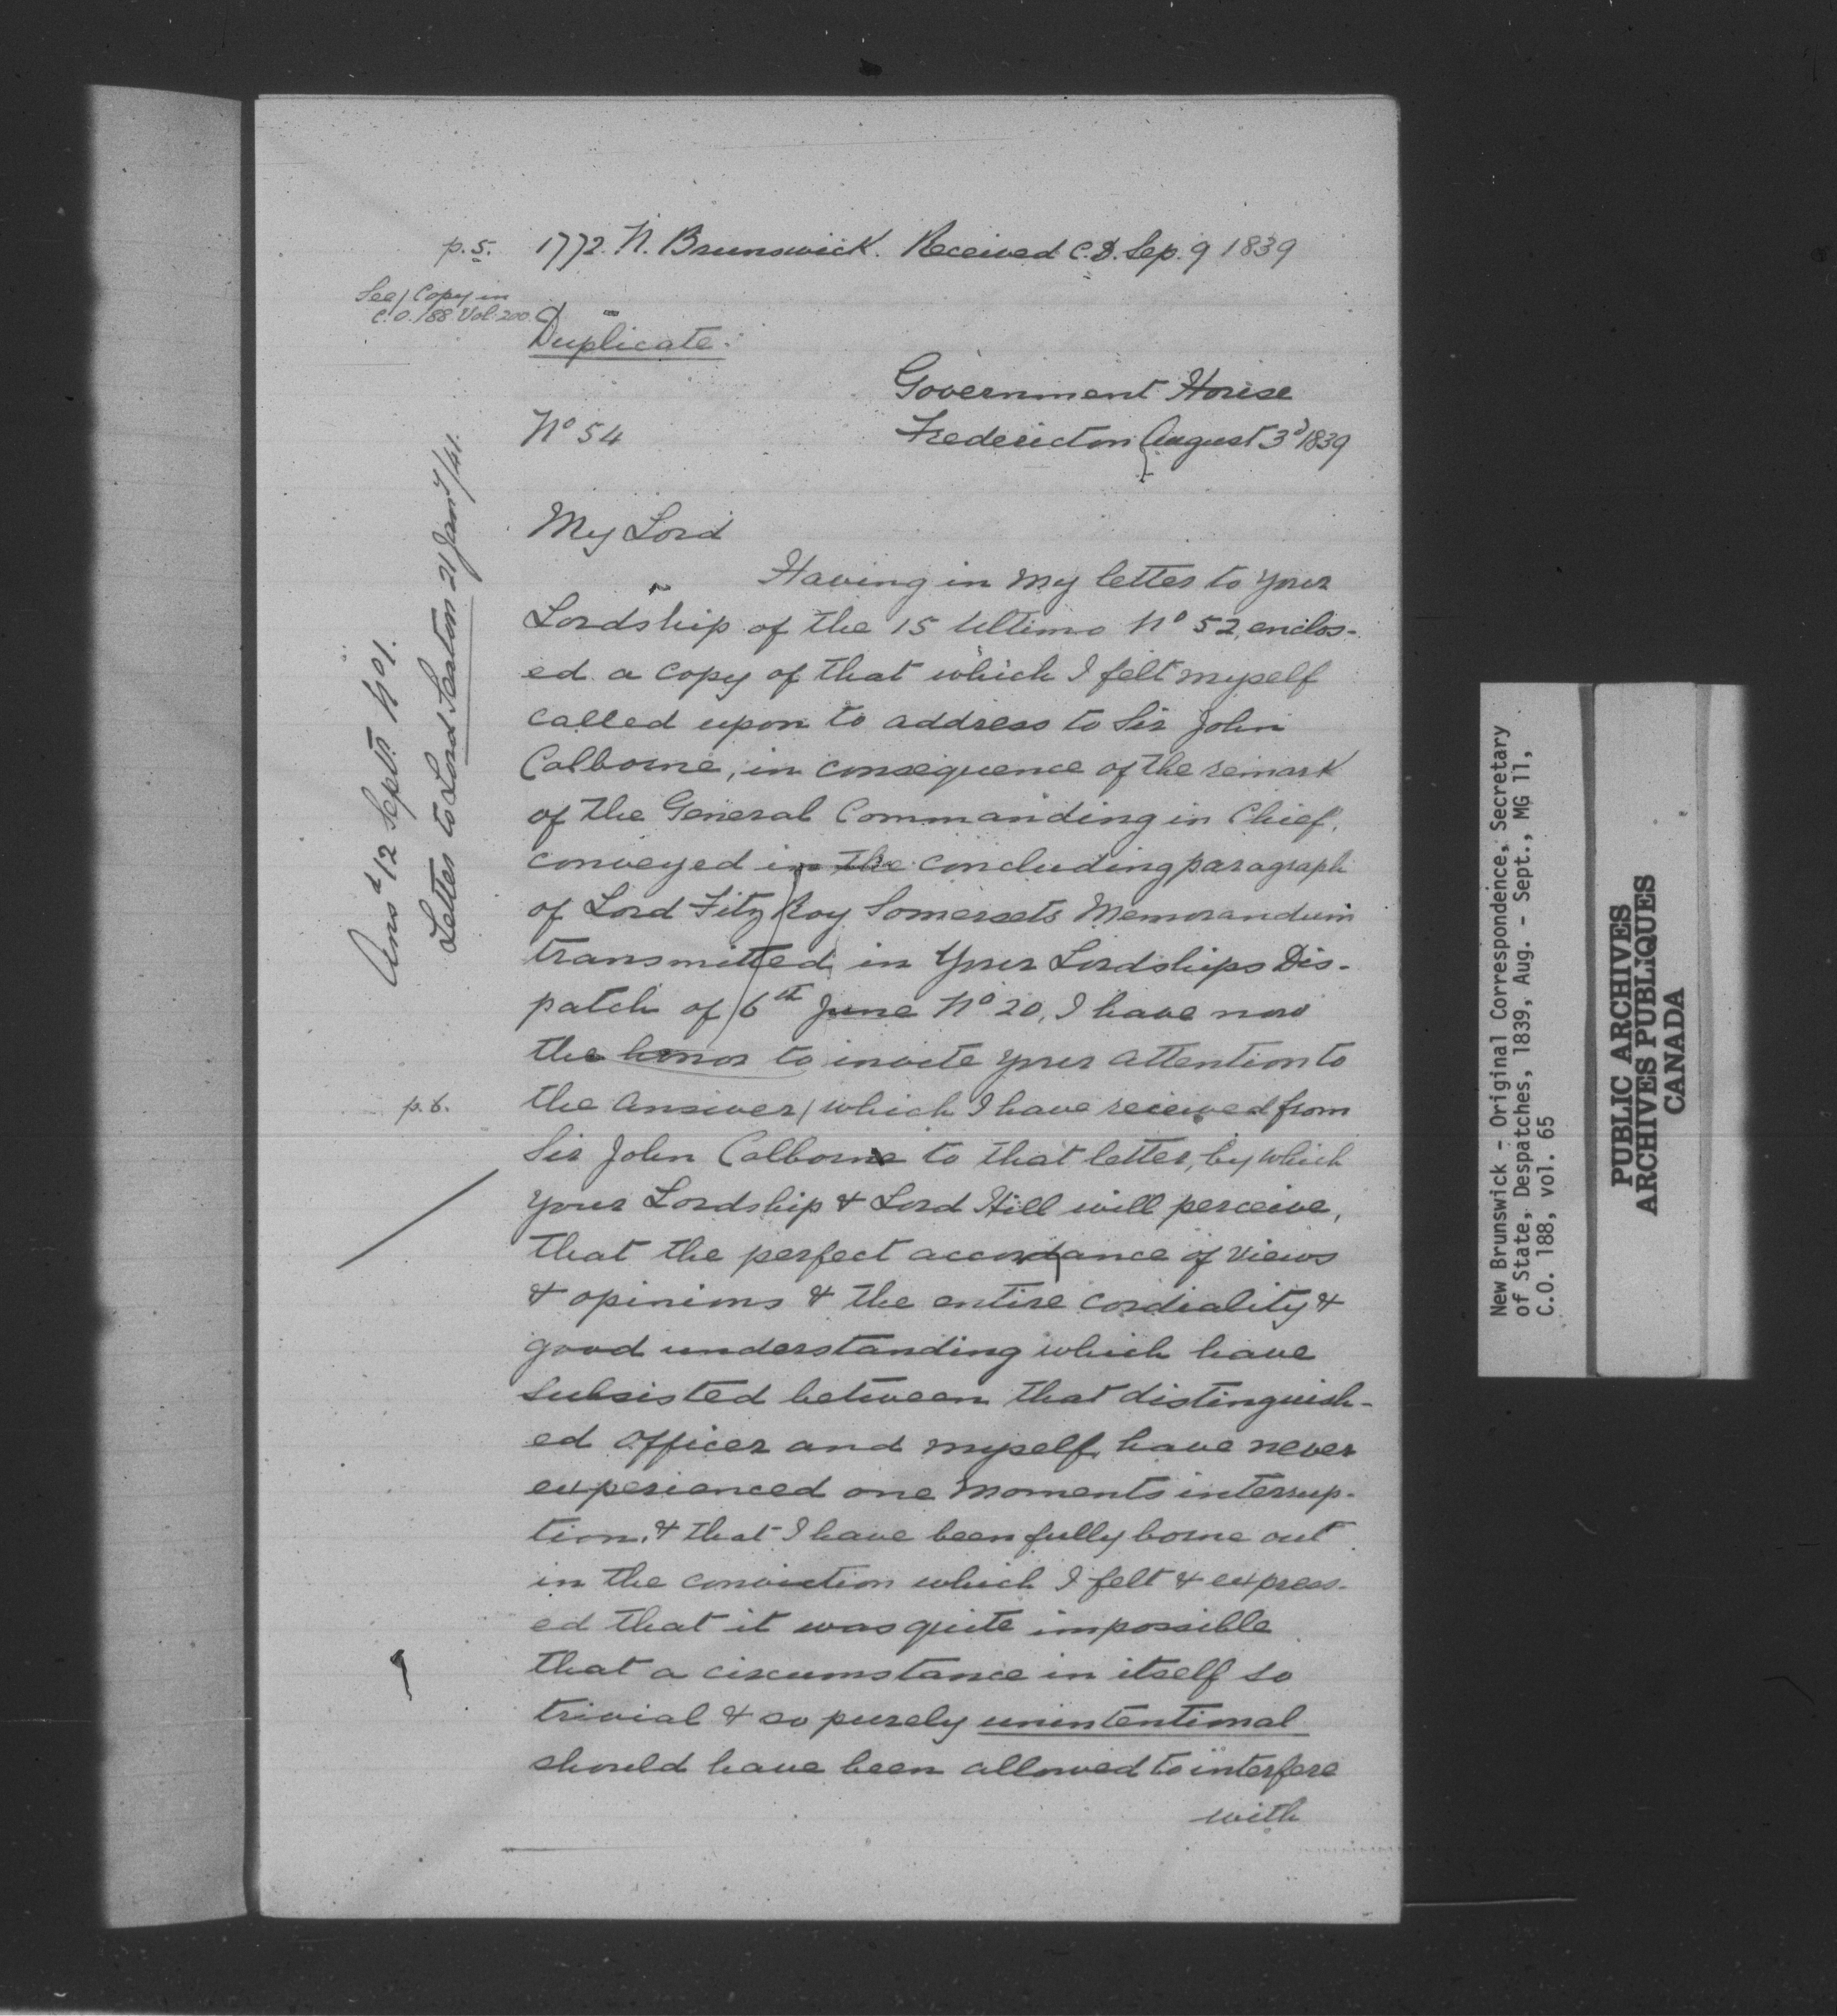 p. 5. 1772. N. Brunswick. Received C.D. Sep. 9 1839
See / Copy in
C.O. 188 Vol. 200.
Duplicate.
Government House
No 54 Fredericton August 3d 1839
My Lord
Having in my letter to your
Lordship of the 15 Ultimo No 52, enclos-
ed a copy of that which I felt myself
called upon to address to Sir John
Colborne, in consequence of the remark
of the General Commanding in Chief,
conveyed in the concluding paragraph
of Lord Fitz Roy Somersets Memorandum
transmitted in Your Lordships Dis-
patch of 6th June No 20, I have now
the honor to invite your attention to
p. 6. the answer / which I have received from
Sir John Colborne to that letter, by which
your Lordship & Lord Hill will perceive,
that the perfect accordance of views
& opinions & the entire cordiality &
good understanding which have
subsisted between that distinguish-
ed officer and myself, have never
experienced one moments interrup-
tion, & that I have been fully borne out
in the conviction which I felt & express-
ed that it was quite impossible
that a circumstance in itself so
trivial & so purely unintentional
should have been allowed to interfere
with
Ansd 12 Septr. No 1.
Letter to Lord Seaton 21 Jany/41.
New Brunswick - Original Correspondence, Secretary
of State, Despatches, 1839, Aug. - Sept., MG 11,
C.O. 188, vol. 65
PUBLIC ARCHIVES
ARCHIVES PUBLIQUES
CANADA